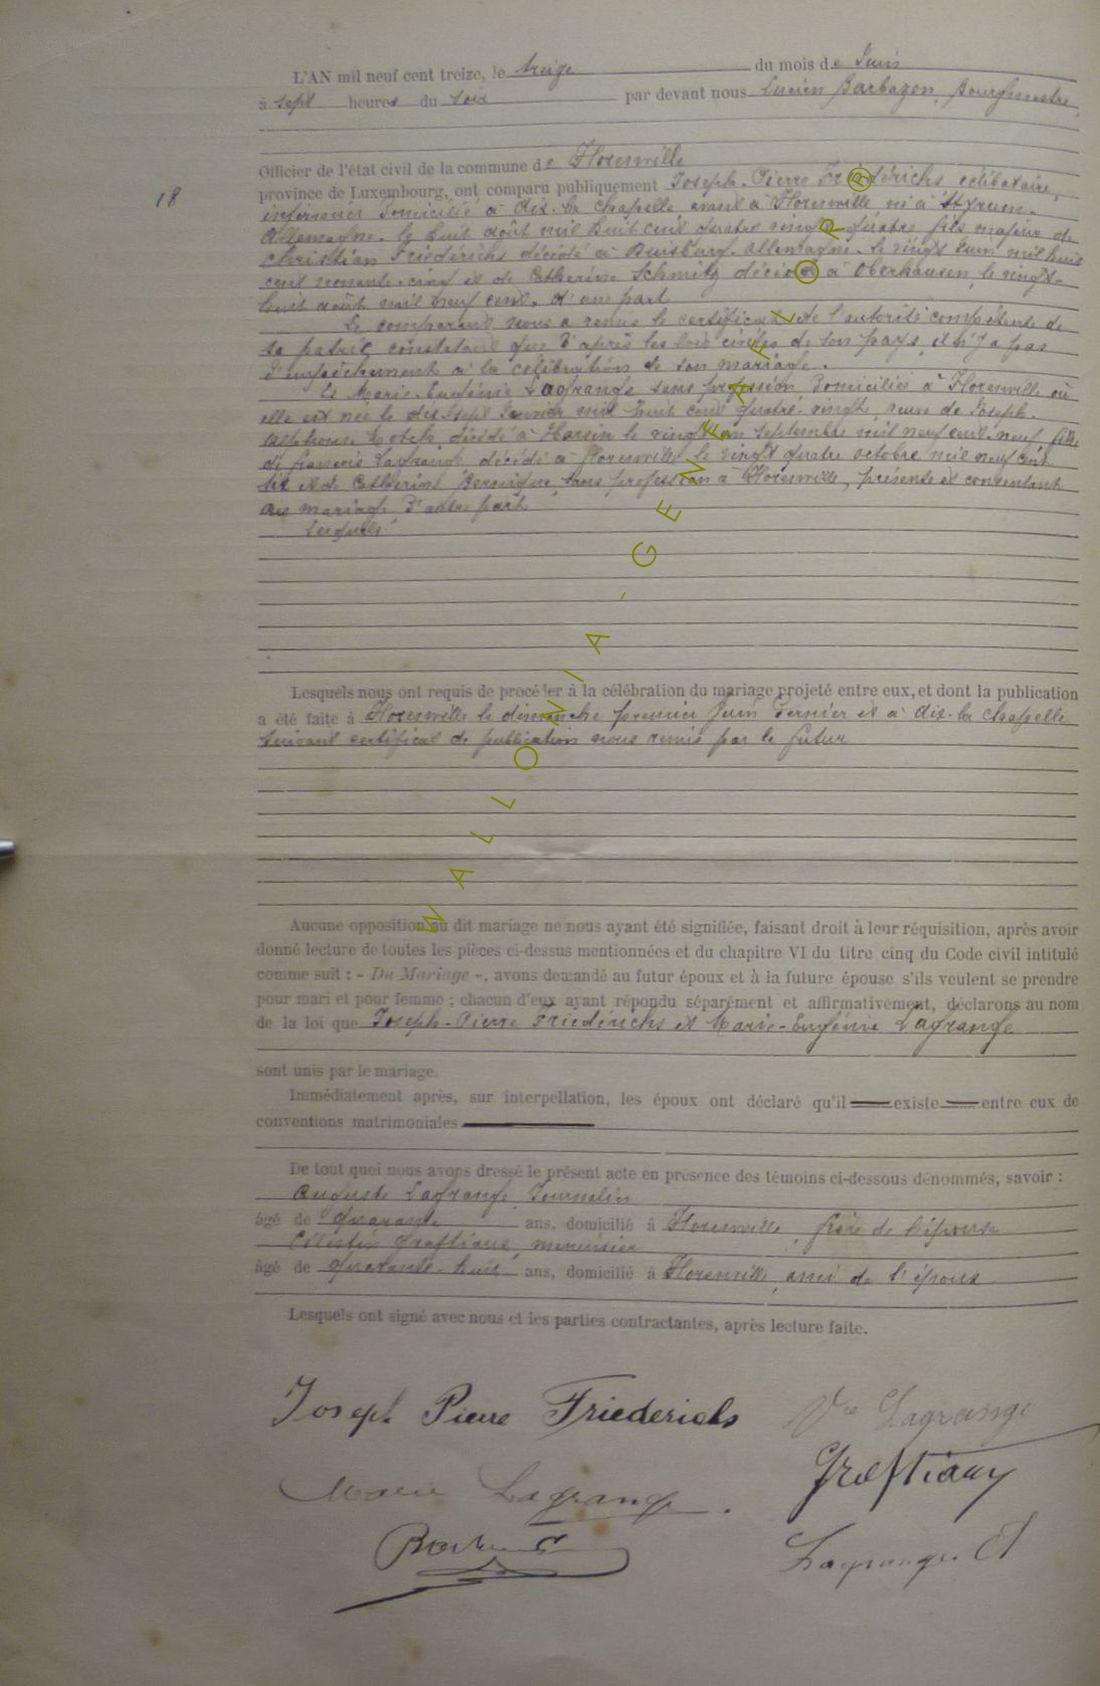 L'AN mil neuf cent treize, le treize du mois de Juin
à sept heures du soir par devant nous Lucien Barbazon, Bourgmestre
Officier de l'état civil de la commune de Florenville
18
province de Luxembourg, ont comparu publiquement Joseph-Pierre Friedérichs célibataire,
domicilié à Aix-la-Chapelle avant à Florenville né à Styrum-
Allemagne, le huit août mil huit cent quatre vingt quatre fils majeur de
Christian Friedérichs décédé à Duisburg-Allemagne, le vingt Juin mil huit
cent nonante-cinq et de Catherine Schmitz décédée à Oberhausen le vingt-
huit août mil neuf cent, d'une part
Le comparant nous a remis le certificat de l'autorité compétente de
sa patrie constatant que d'après les lois civiles de son pays, il n'y a pas
d'empêchement à la célébration de son mariage.
Et Marie-Eugénie Lagrange sans profession domiciliée à Florenville où
elle est née le dix sept Janvier mil huit cent quatre-vingt, veuve de Joseph-
Alphonse décédé à Harsin le vingt un septembre mil neuf cent-neuf, fille
de françois Lagrange décédé à Florenville le vingt quatre octobre mil neuf cent
six et de Catherine sans profession à Florenville, présente et consentant
au mariage d'autre part
Lesquels
Lesquels nous ont requis de procéder à la célébration du mariage projeté entre eux, et dont la publication
a été faite à Florenville le dimanche premier Juin dernier et à Aix-la-Chapelle
suivant certificat de publication nous remis par le futur
Aucune opposition au dit mariage ne nous ayant été signifiée, faisant droit à leur réquisition, après avoir
donné lecture de toutes les pièces ci-dessus mentionnées et du chapitre VI du titre cinq du Code civil intitulé
comme suit : « Du Mariage », avons demandé au futur époux et à la future épouse s'ils veulent se prendre
pour mari et pour femme ; chacun d'eux ayant répondu séparément et affirmativement, déclarons au nom
de la loi que Joseph-Pierre Friedérichs et Marie-Eugénie Lagrange
sont unis par le mariage.
Immédiatement après, sur interpellation, les époux ont déclaré qu'il existe entre eux de
conventions matrimoniales
De tout quoi nous avons dressé le présent acte en présence des témoins ci-dessous dénommés, savoir :
Auguste Lagrange, Journalier
âgé de quarante ans, domicilié à Florenville, frère de l'épouse
Célestin Graftiaux, menuisier
âgé de quarante-huit ans, domicilié à Florenville, ami de l'époux
Lesquels ont signé avec nous et les parties contractantes, après lecture faite.
Joseph Pierre Friederichs Vve Lagrange
Marie Lagrange. Graftiaux
Lagrange A
WALLONIA-GENEAFLOR®